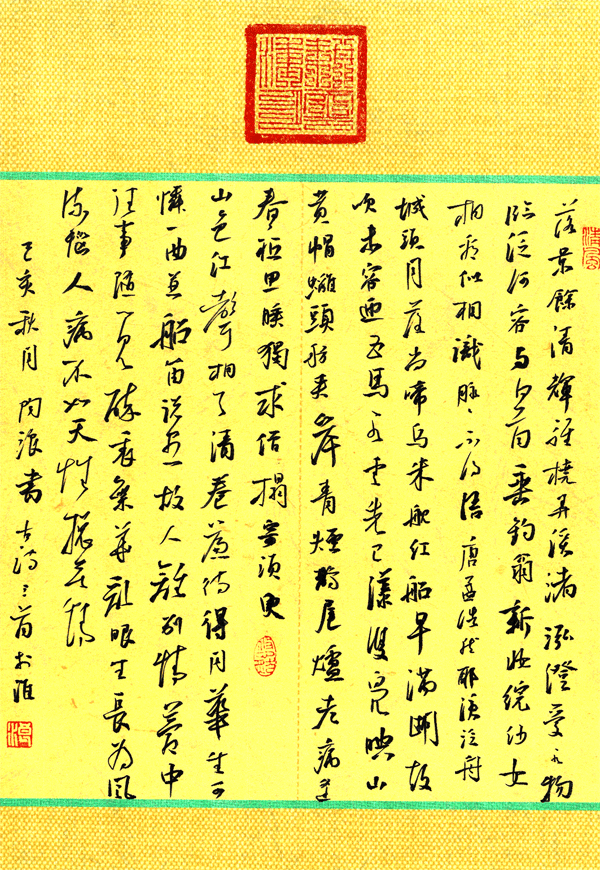 落景餘清輝輕橈弄溪渚泓澄愛水物
臨泛何容與白首垂釣翁新妝浣紗女
相看似相識脉々不得語 唐孟浩然耶溪泛舟
城頭月落尚啼烏朱艦紅船早滿湖鼓
吹未容迎五馬水雲先已漾雙鳧映山
黃帽螭頭舫夾岸青煙鵲尾爐老病逢
春祗思睡獨求僧榻寄須臾
山色江聲相與清卷簾待得月華生可
憐一曲並船笛說盡故人離別情夢中
往事隨心見醉裏繁華亂眼生長為風
流惱人病不如天性總無情
己亥秋月 浪書古詩三首於淮